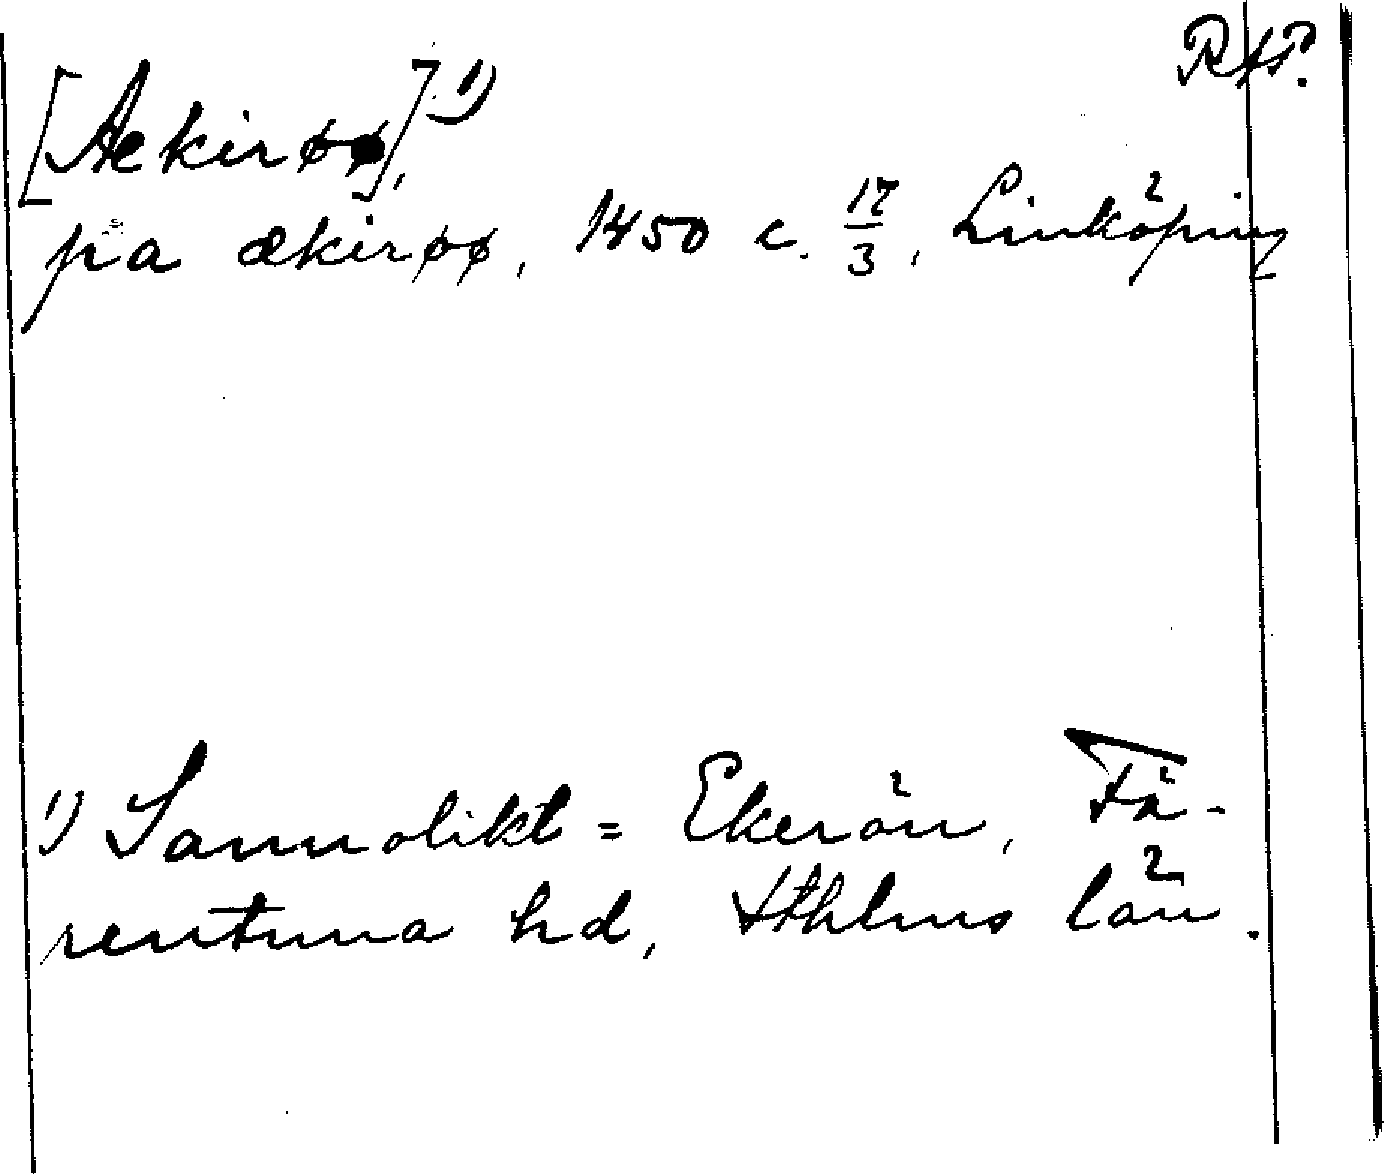 [Aekirøø]¹⁾,
på ækirøø, 1450 c. 17/3, Linköping
¹⁾ Sannolikt = Ekerön, Fä-
rentuna hd, Sthlms län.